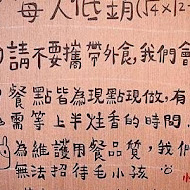 每人低銷(元4x12
請不要攜帶外食,我們會
餐點皆為現點現做,有
需等上半炷香的時間.
為維護用餐品質,我們
無法招待毛小孩